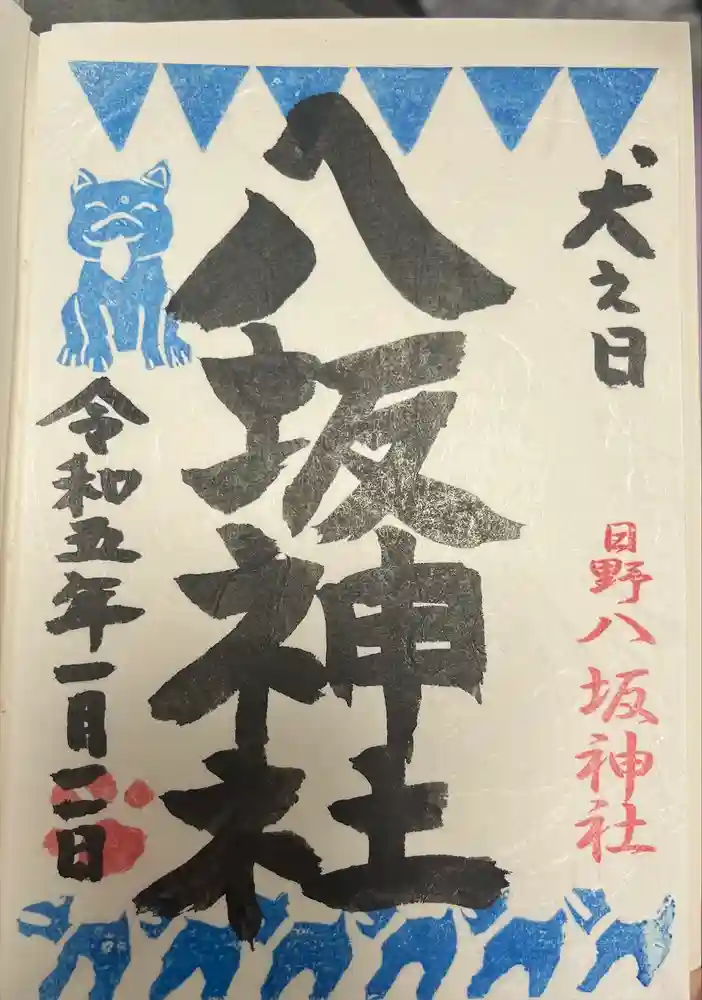 犬之日
日野八坂神社
八坂神社
令和五年一月二日